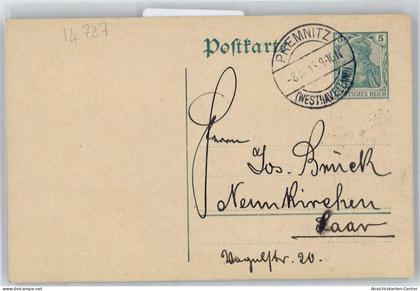 14727
Postkarte
5
PREMNITZ
(WESTHAVELLAND)
DEUTSCHES REICH
Herrn
Jos. Brück
Neunkirchen
Saar
Vogelstr. 20.
Ansichtskarten-Center